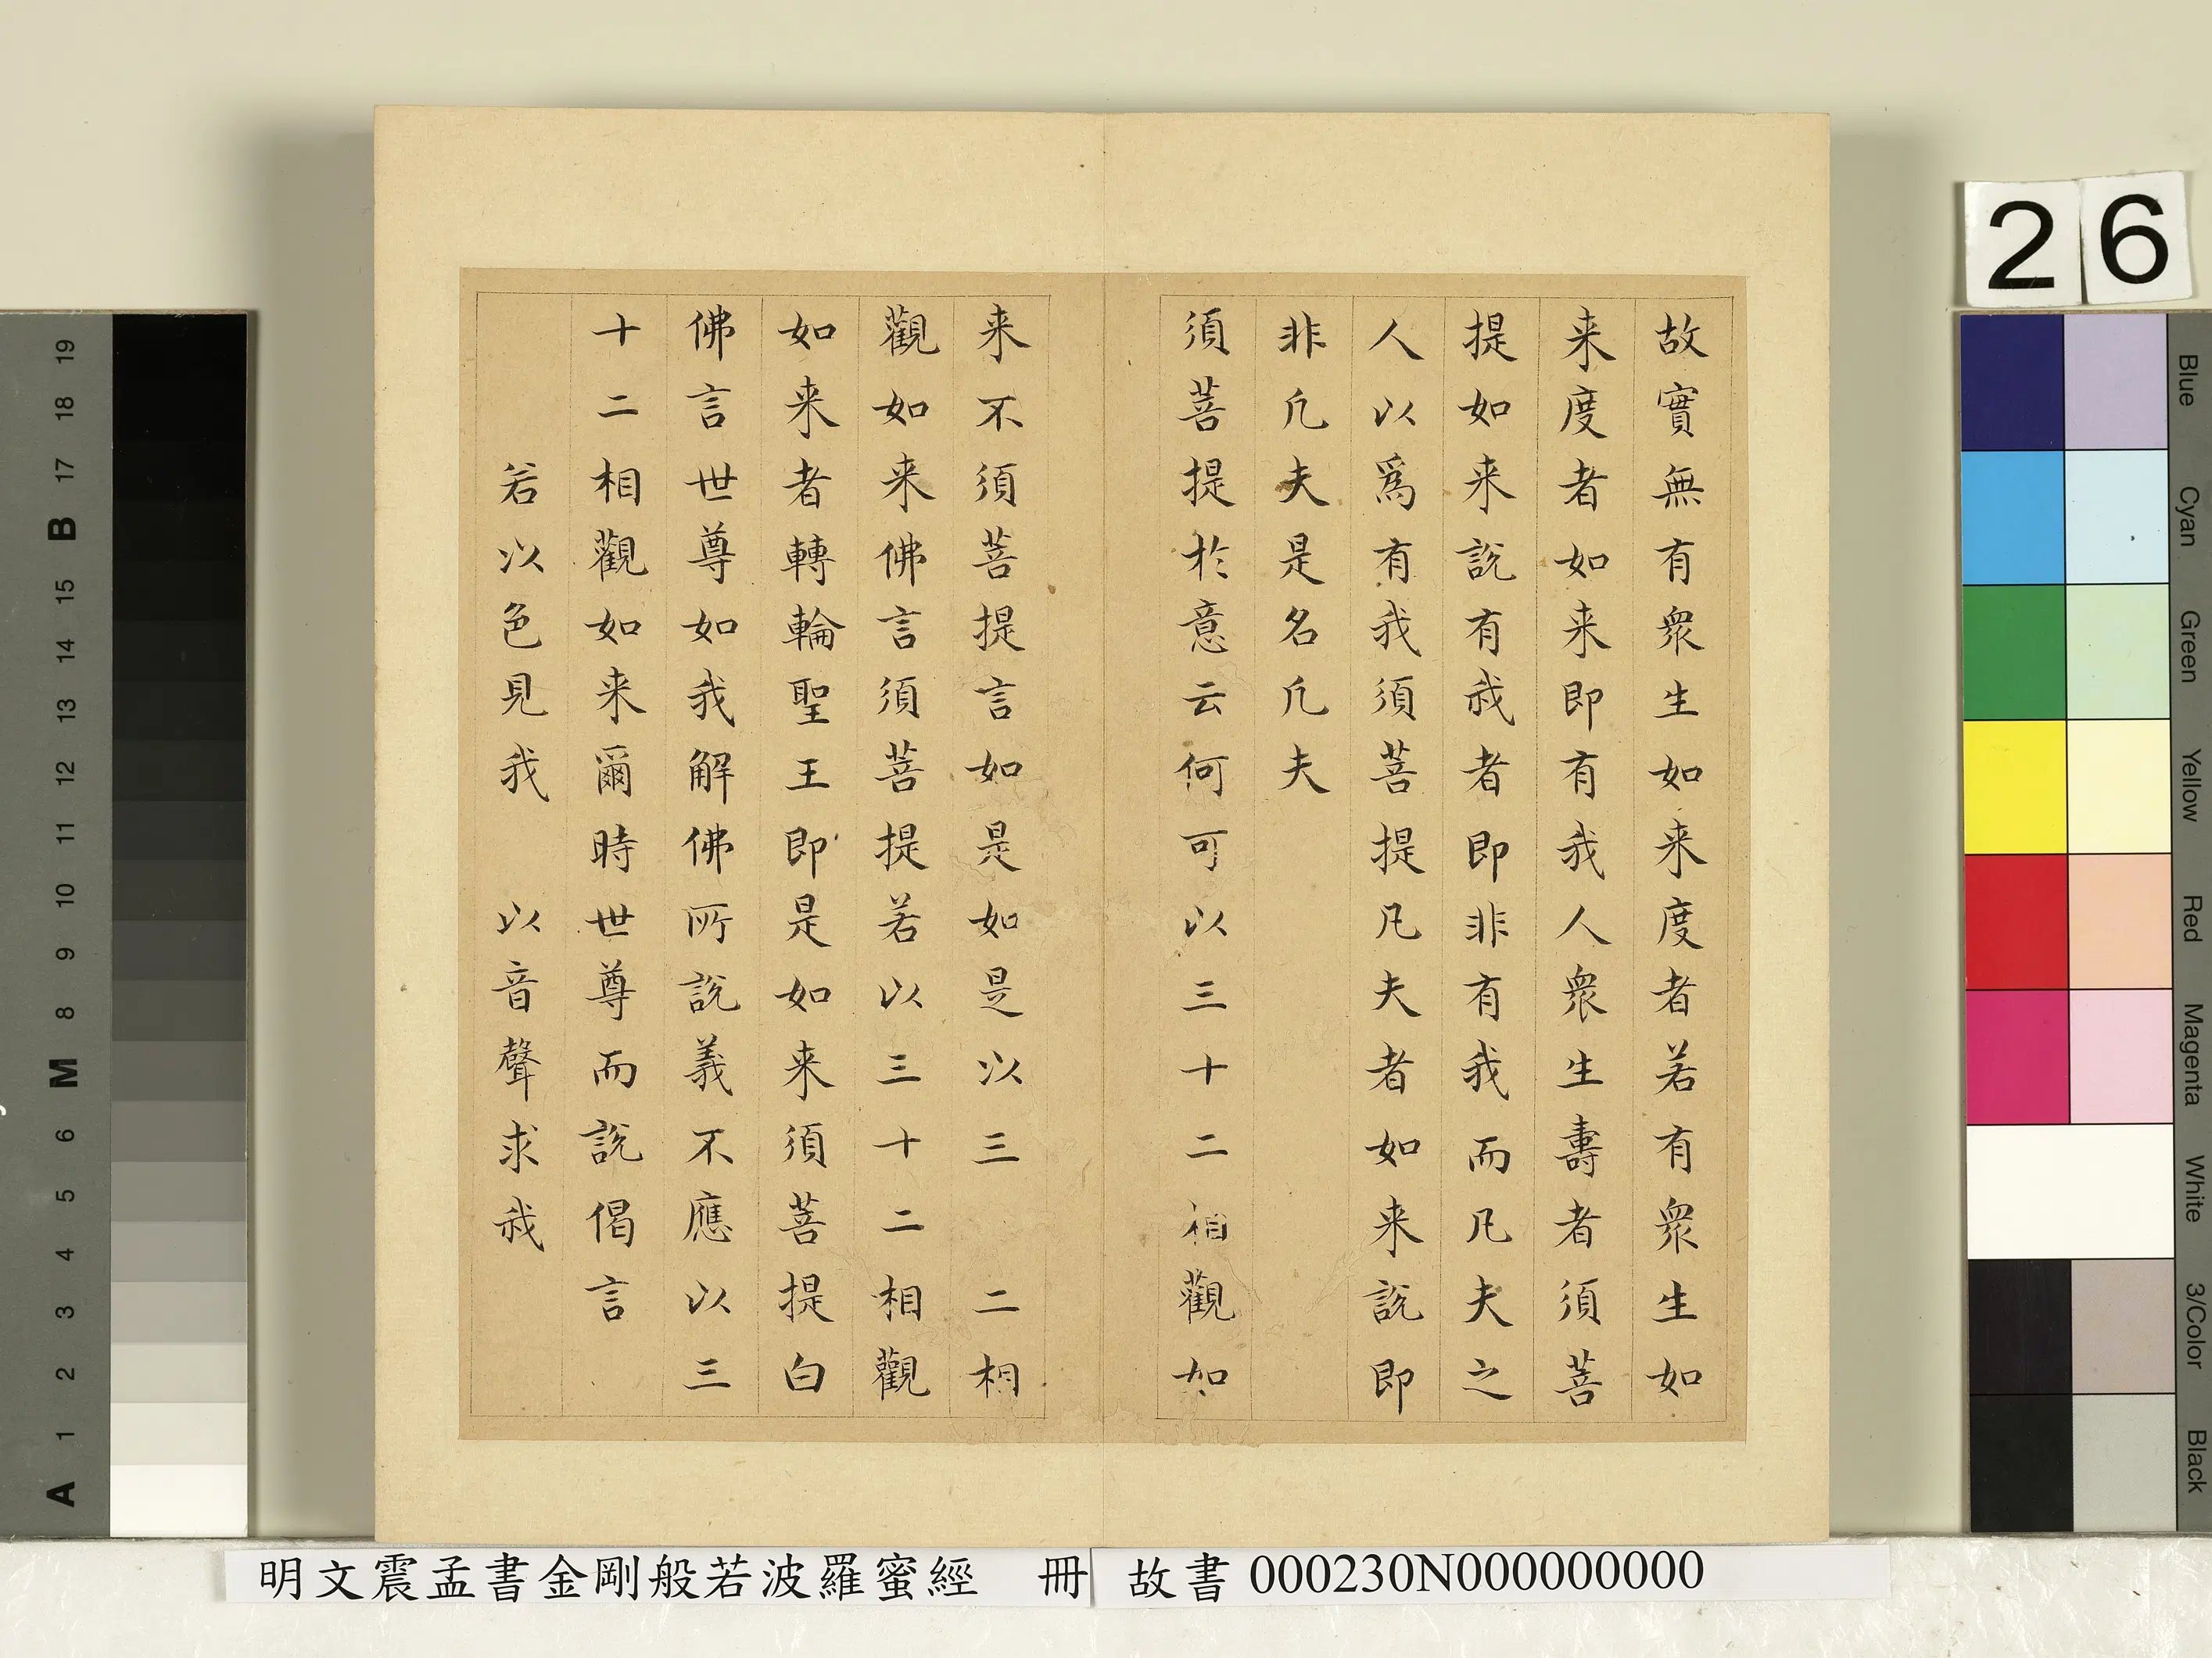 故實無有衆生如来度者若有衆生如
来度者如来即有我人衆生壽者須菩
提如来說有我者即非有我而凡夫之
人以爲有我須菩提凡夫者如来說即
非凡夫是名凡夫
須菩提於意云何可以三十二相觀如
来不須菩提言如是如是以三 二相
觀如来佛言須菩提若以三十二相觀
如来者轉輪聖王即是如来須菩提白
佛言世尊如我解佛所說義不應以三
十二相觀如来爾時世尊而說偈言
若以色見我 以音聲求我
26
19
18
17
B
15
14
13
12
11
10
9
8
M
6
5
4
3
2
1
A
Blue
Cyan
Green
Yellow
Red
Magenta
White
3/Color
Black
明文震孟書金剛般若波羅蜜經 冊 故書 000230N000000000